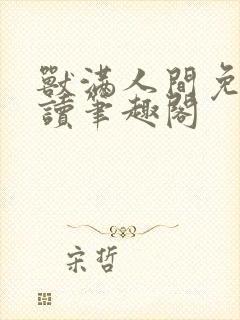 獸滿人間免
讀筆趣閣
宋哲